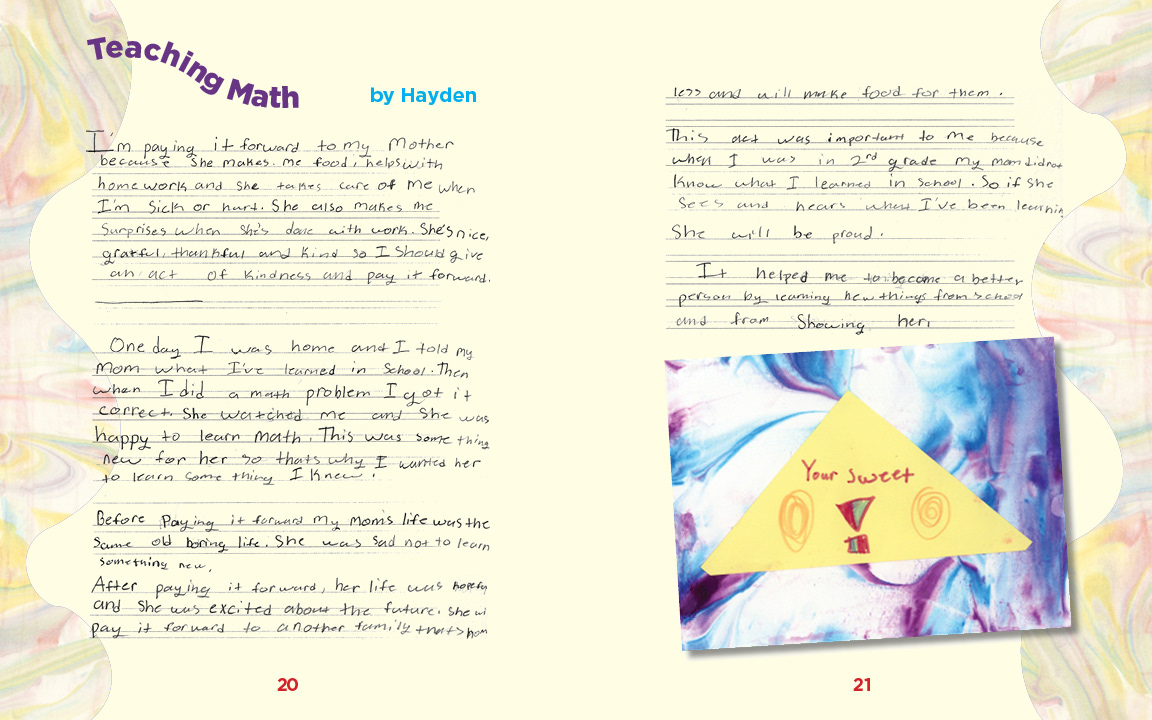 Teaching Math
by Hayden
I'm paying it forward to my Mother
because She makes me food, helps with
homework and she takes care of me when
I'm Sick or hurt. She also makes me
Surprises when She's done with work. She's nice,
gratful, thankful and kind so I Should give
an act of kindness and pay it forward.
One day I was home and I told my
Mom what I've learned in School. Then
when I did a math problem I got it
correct. She watched me and She was
happy to learn math. This was some thing
new for her so thats why I wanted her
to learn some thing I knew.
Before Paying it forward my Mom's life was the
Same old boring life. She was sad not to learn
something new.
After paying it forward, her life was hopeful
and She was excited about the future. She wi
pay it forward to another family that's hom
20
less and will make food for them.
This act was important to me because
when I was in 2rd grade my mom did not
Know what I learned in School. So if she
Sees and hears what I've been learnin
She will be proud.
It helped me to become a better
person by learning new things from School
and from Showing her.
Your Sweet
21